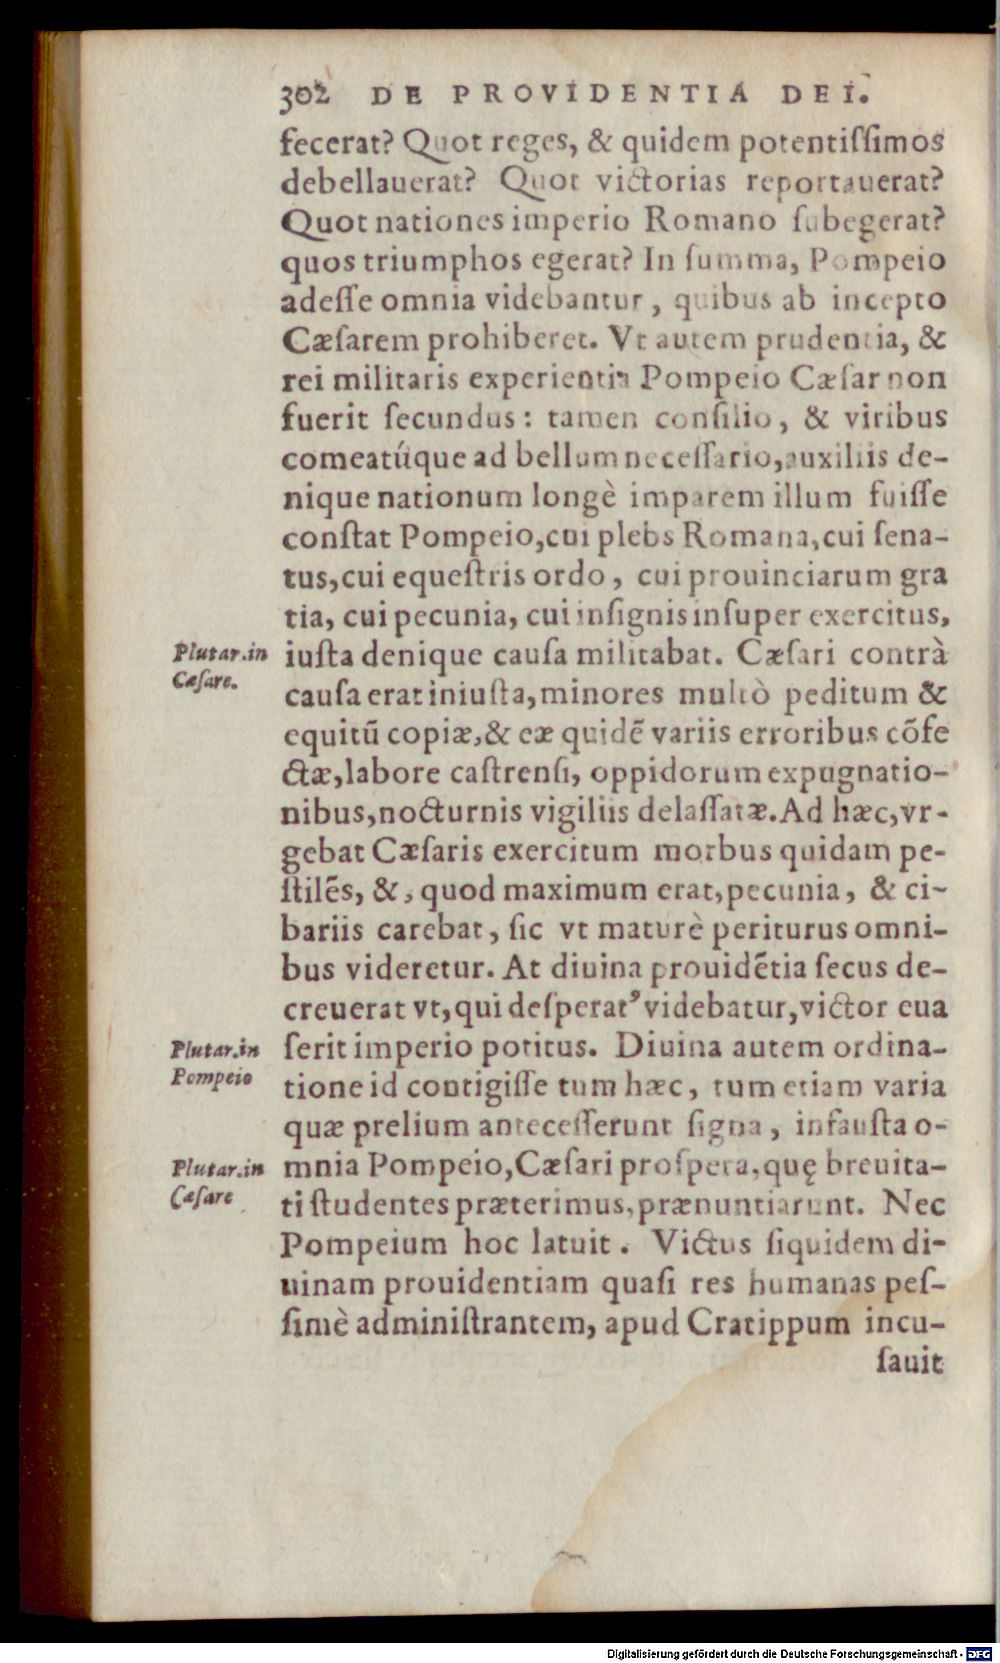 302 DE PROVIDENTIA DEI.
fecerat? Quot reges, & quidem potentiſſimos
debellauerat? Quot victorias reportauerat?
Quot nationes imperio Romano ſubegerat?
quos triumphos egerat? In ſumma, Pompeio
adeſſe omnia videbantur, quibus ab incepto
Cæſarem prohiberet. Vt autem prudentia, &
rei militaris experientia Pompeio Cæſar non
fuerit ſecundus: tamen conſilio, & viribus
comeatúque ad bellum neceſſario, auxiliis de-
nique nationum longè imparem illum fuiſſe
conſtat Pompeio, cui plebs Romana, cui ſena-
tus, cui equeſtris ordo, cui prouinciarum gra
tia, cui pecunia, cui inſignis inſuper exercitus,
Plutar. in
Cæſare.
iuſta denique cauſa militabat. Cæſari contrà
cauſa erat iniuſta, minores multò peditum &
equitũ copiæ, & eæ quidẽ variis erroribus cõfe
ctæ, labore caſtrenſi, oppidorum expugnatio-
nibus, nocturnis vigiliis delaſſatæ. Ad hæc, vr-
gebat Cæſaris exercitum morbus quidam pe-
ſtilẽs, &, quod maximum erat, pecunia, & ci-
bariis carebat, ſic vt maturè periturus omni-
bus videretur. At diuina prouidẽtia ſecus de-
creuerat vt, qui deſperatꝰ videbatur, victor eua
Plutar. in
Pompeio
ſerit imperio potitus. Diuina autem ordina-
tione id contigiſſe tum hæc, tum etiam varia
quæ prelium anteceſſerunt ſigna, infauſta o-
Plutar. in
Cæſare
mnia Pompeio, Cæſari proſpera, quę breuita-
ti ſtudentes præterimus, prænuntiarunt. Nec
Pompeium hoc latuit. Victus ſiquidem di-
uinam prouidentiam quaſi res humanas peſ-
ſimè adminiſtrantem, apud Cratippum incu-
ſauit
Digitalisierung gefördert durch die Deutsche Forschungsgemeinschaft - DFG